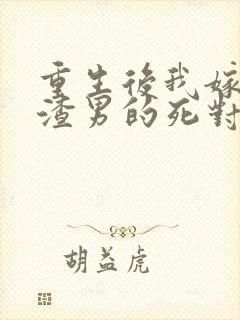 重生後我嫁
渣男的死對
胡益虎